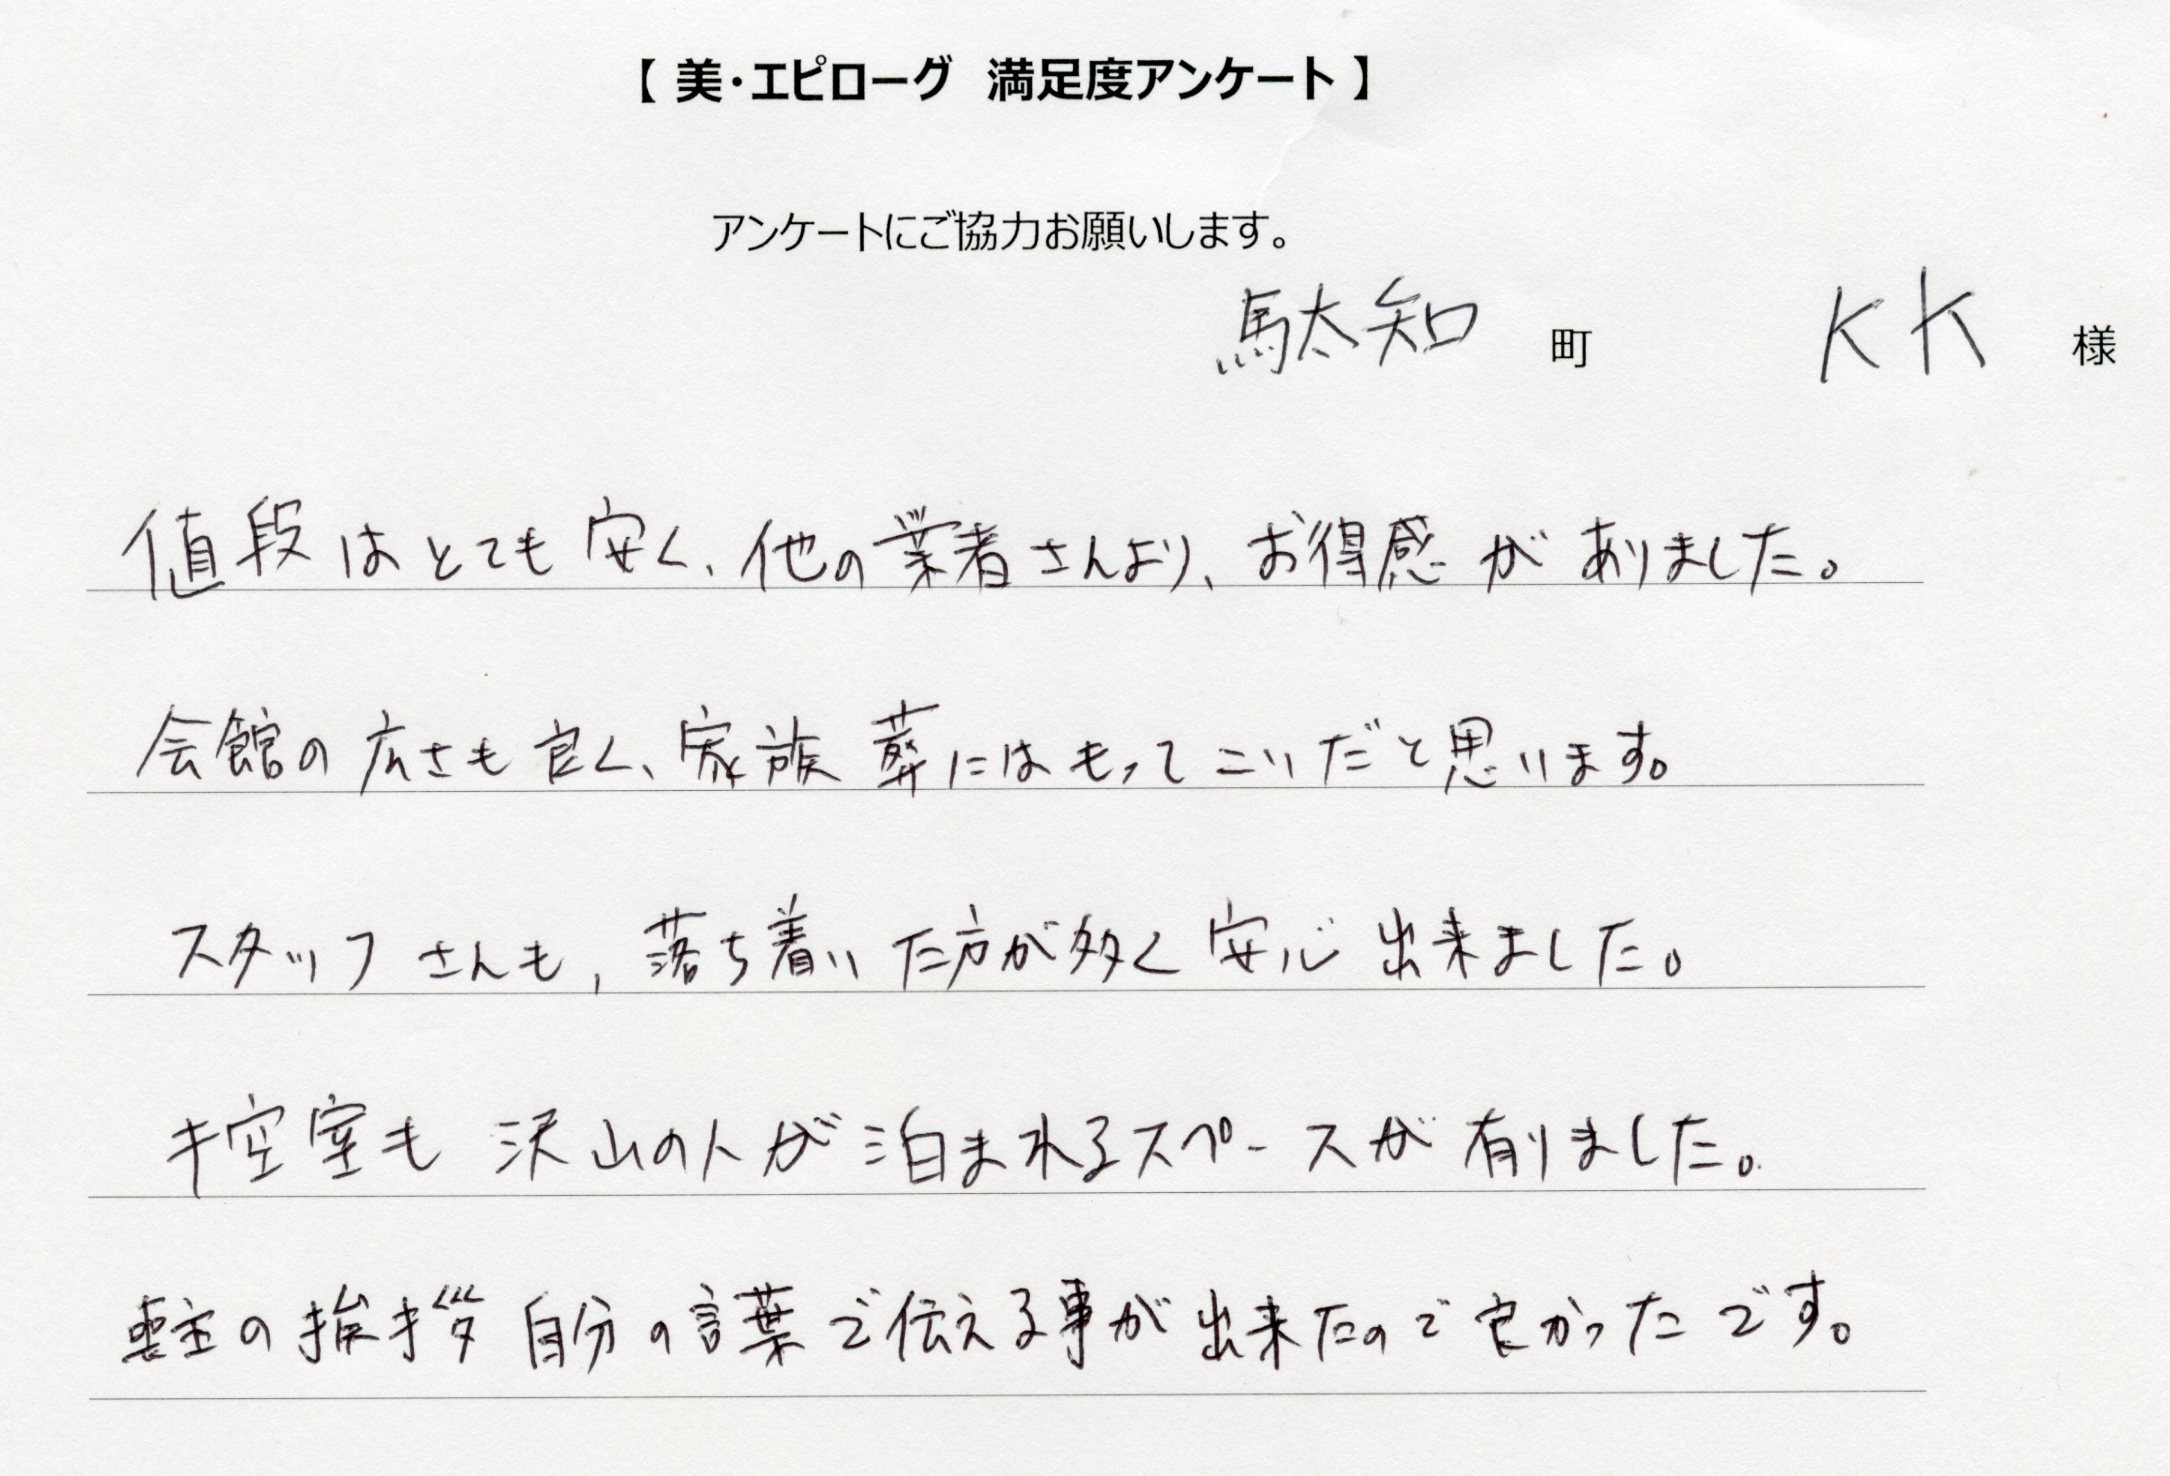 【 美・エピローグ 満足度アンケート 】
アンケートにご協力お願いします。
駄知 町 KK 様
値段はとても安く、他の業者さんより、お得感がありました。
会館の広さも良く、家族葬にはもってこいだと思います。
スタッフさんも、落ち着いた方が多く安心出来ました。
控室も沢山の人が泊まれるスペースが有りました。
喪主の挨拶自分の言葉で伝える事が出来たので良かったです。